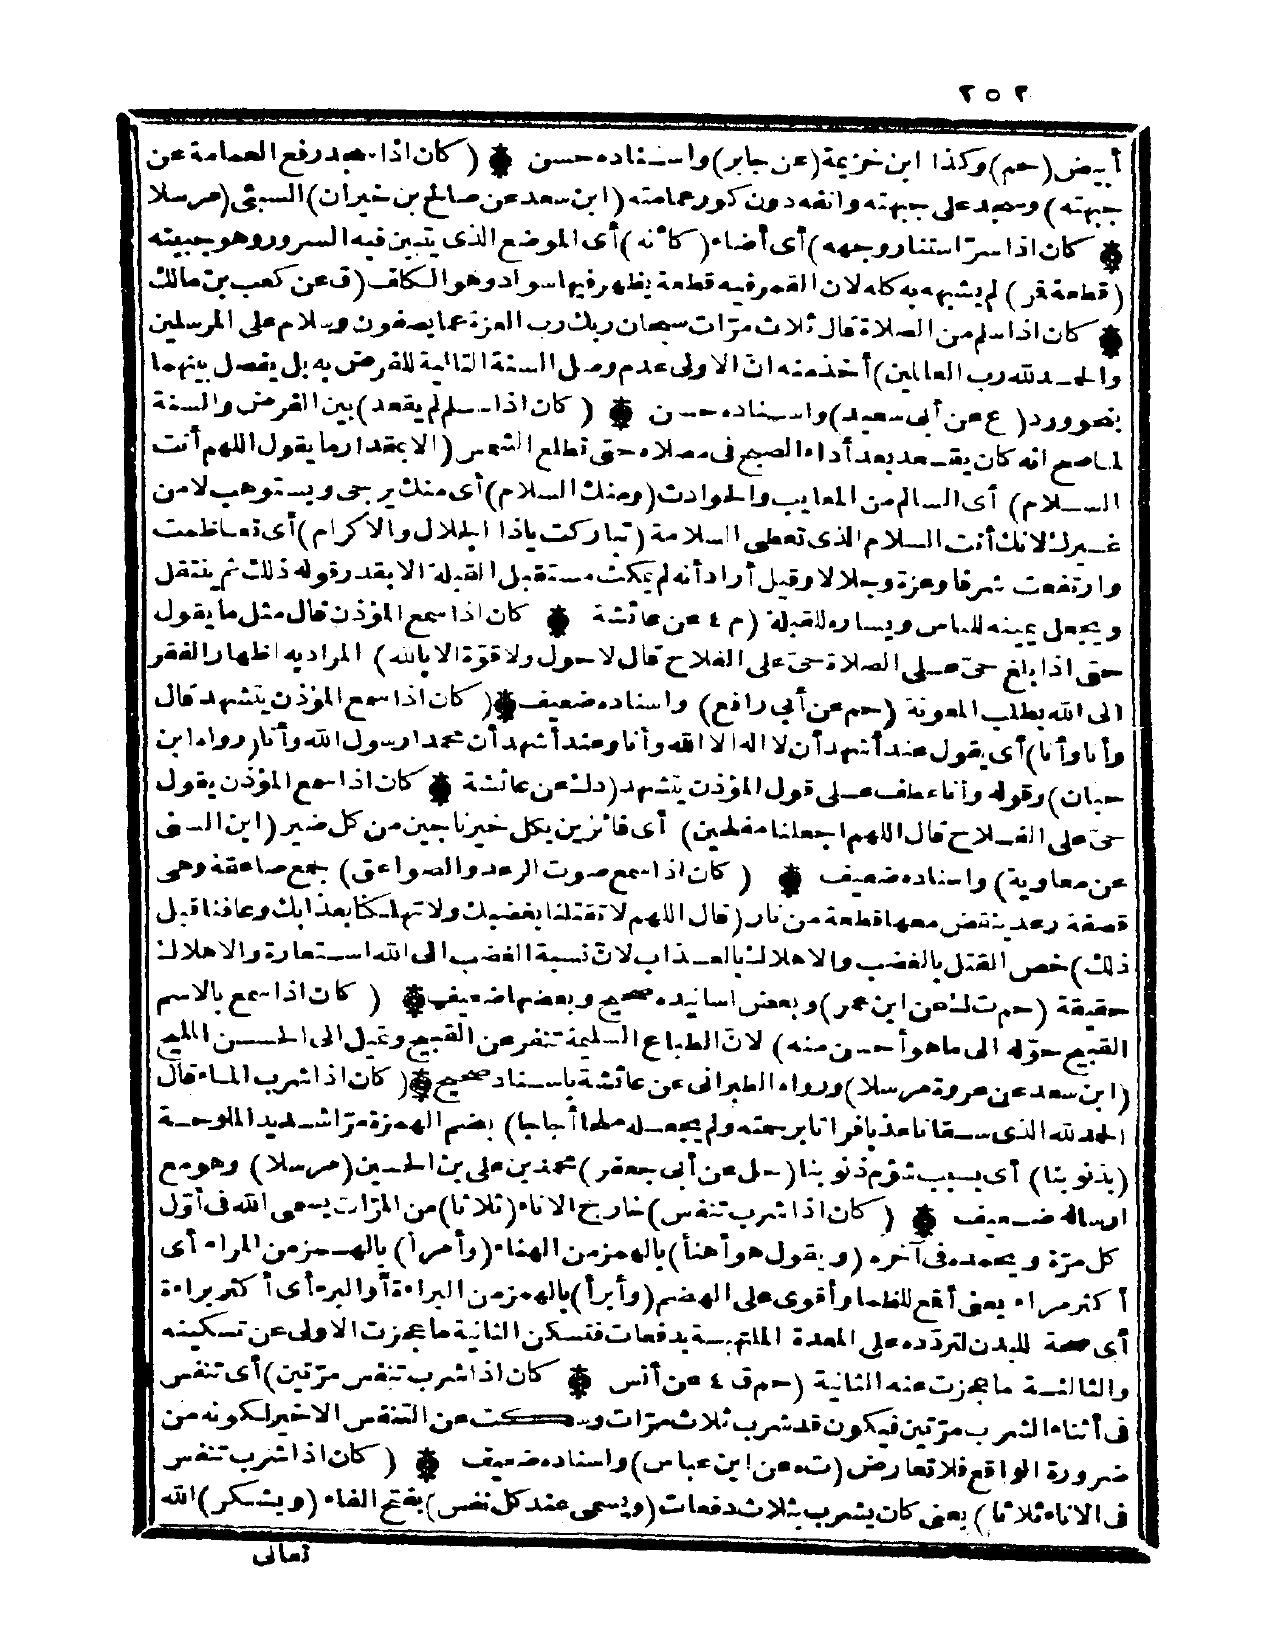 ٢٥٢
أبيض (حم) وكذا ابن خزيمة (عن جابر) واسناده حسن ( كان اذا سجد رفع العمامة عن
جبهته) وسجد على جبهته وانفه دون كور عمامته (ابن سعد عن صالح بن خيران) السبئى (مرسلا
كان اذا سرّ استنار وجهه) أى أضاء (كأنه) أى الموضع الذى يتبين فيه السرور وهو جبينه
(قطعة قمر) لم يشبهه به كله لان القمر فيه قطعة يظهر فيها سواد وهو الكلف (ق عن كعب بن مالك
كان اذا سلم من الصلاة قال ثلاث مرّات سبحان ربك رب العزة عما يصفون وسلام على المرسلين
والحمد لله رب العالمين) أخذ منه انّ الاولى عدم وصل السنة التالية للفرض به بل يفصل بينهما
بنحو ورد (ع عن أبى سعيد) واسناده حسن ( كان اذا سلم لم يقعد) بين الفرض والسنة
لما صح انه كان يقعد بعد أداء الصبح فى مصلاه حتى تطلع الشمس (الا بمقدار ما يقول اللهم أنت
السلام) أى السالم من المعايب والحوادث (ومنك السلام) أى منك يرجى ويستوهب لا من
غيرك لانك أنت السلام الذى تعطى السلامة (تباركت ياذا الجلال والاكرام) أى تعاظمت
وارتفعت شرفا وعزة وجلالا وقيل أراد أنه لم يمكث مستقبل القبلة الا بقدر قوله ذلك ثم ينتقل
ويجعل يمينه للناس ويساره للقبلة (م ٤ عن عائشة كان اذا سمع المؤذن قال مثل ما يقول
حتى اذا بلغ حىّ على الصلاة حىّ على الفلاح قال لا حول ولا قوّة الا بالله) المراد به اظهار الفقر
الى الله بطلب المعونة (حم عن أبى رافع) واسناده ضعيف ( كان اذا سمع المؤذن يتشهد قال
وأنا وأنا) أى يقول عند أشهد أن لا اله الا الله وأنا وعند أشهد أن محمدا رسول الله وأنا (رواه ابن
حبان) وقوله وأنا عطف على قول المؤذن يتشهد (دك عن عائشة كان اذا سمع المؤذن يقول
حىّ على الفلاح قال اللهم اجعلنا مفلحين) أى فائزين بكل خير ناجين من كل ضير (ابن السنى
عن معاوية) واسناده ضعيف ( كان اذا سمع صوت الرعد والصواعق) جمع صاعقة وهى
قصفة رعد ينقض معها قطعة من نار (قال اللهم لا تقتلنا بغضبك ولا تهلكنا بعذابك وعافنا قبل
ذلك) خص القتل بالغضب والاهلاك بالعذاب لانّ نسبة الغضب الى الله استعارة والاهلاك
حقيقة (حم ت ك عن ابن عمر) وبعض اسانيده صحيح وبعضها ضعيف ( كان اذا سمع بالاسم
القبيح حوّله الى ما هو أحسن منه) لانّ الطباع السليمة تنفر عن القبيح وتميل الى الحسن المليح
(ابن سعد عن عروة مرسلا) ورواه الطبرانى عن عائشة باسناد صحيح ( كان اذا شرب الماء قال
الحمد لله الذى سقانا عذبا فراتا برحمته ولم يجعله ملحا أجاجا) بضم الهمزة مرّا شديد الملوحة
(بذنوبنا) أى بسبب شؤم ذنوبنا (حل عن أبى جعفر) محمد بن على بن الحسين (مرسلا) وهو مع
ارساله ضعيف ( كان اذا شرب تنفس) خارج الاناء (ثلاثا) من المرّات يسمى الله فى أوّل
كل مرّة ويحمده فى آخره (ويقول هو أهنأ) بالهمز من الهناء (وأمرأ) بالهمز من المراء أى
أكثر مراء يعنى أقمع للظما وأقوى على الهضم (وأبرأ) بالهمز من البراءة أو البرء أى أكثر براءة
أى صحة للبدن لتردّده على المعدة الملتهبة بدفعات فتسكن الثانية ما عجزت الاولى عن تسكينه
والثالثة ما عجزت عنه الثانية (حم ق ٤ عن أنس كان اذا شرب تنفس مرّتين) أى تنفس
فى أثناء الشرب مرّتين فيكون قد شرب ثلاث مرّات وسكت عن التنفس الاخير لكونه من
ضرورة الواقع فلا تعارض (ت ه عن ابن عباس) واسناده ضعيف ( كان اذا شرب تنفس
فى الاناء ثلاثا) يعنى كان يشرب بثلاث دفعات (ويسمى عند كل نفس) بفتح الفاء (ويشكر) الله
تعالى